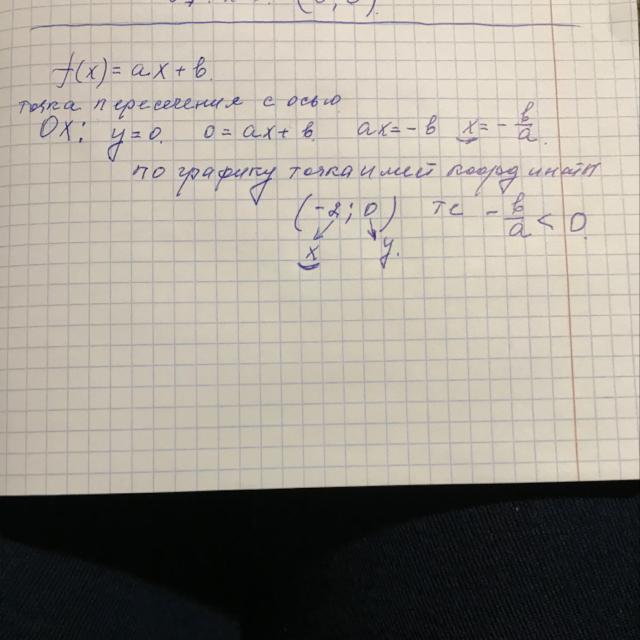 f(x) = ax + b.
точка пересечения с осью
OX: y = 0. 0 = ax + b. ax = -b x = -b/a.
по графику точка имеет координаты
(-2; 0) те -b/a < 0.
x y.